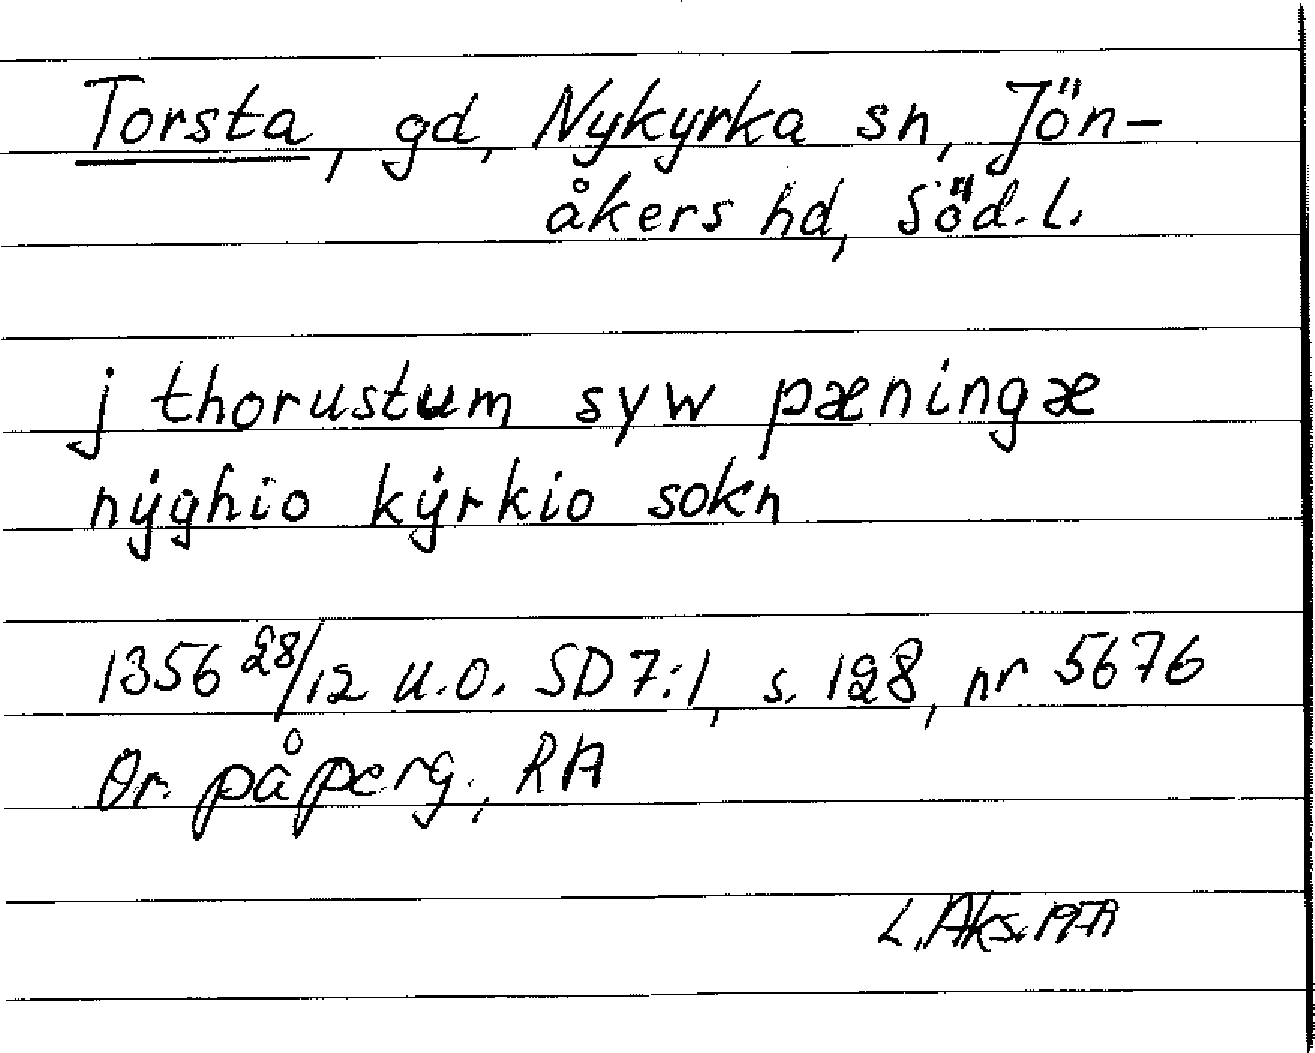 Torsta, gd, Nykyrka sn, Jön-
åkers hd, Söd.l.
j thorustum syw pæningæ
nẏghio kẏrkio sokn
1356 28/12 u.o. SD 7:1, s. 128, nr 5676
Or. på perg., RA
L. Aks.